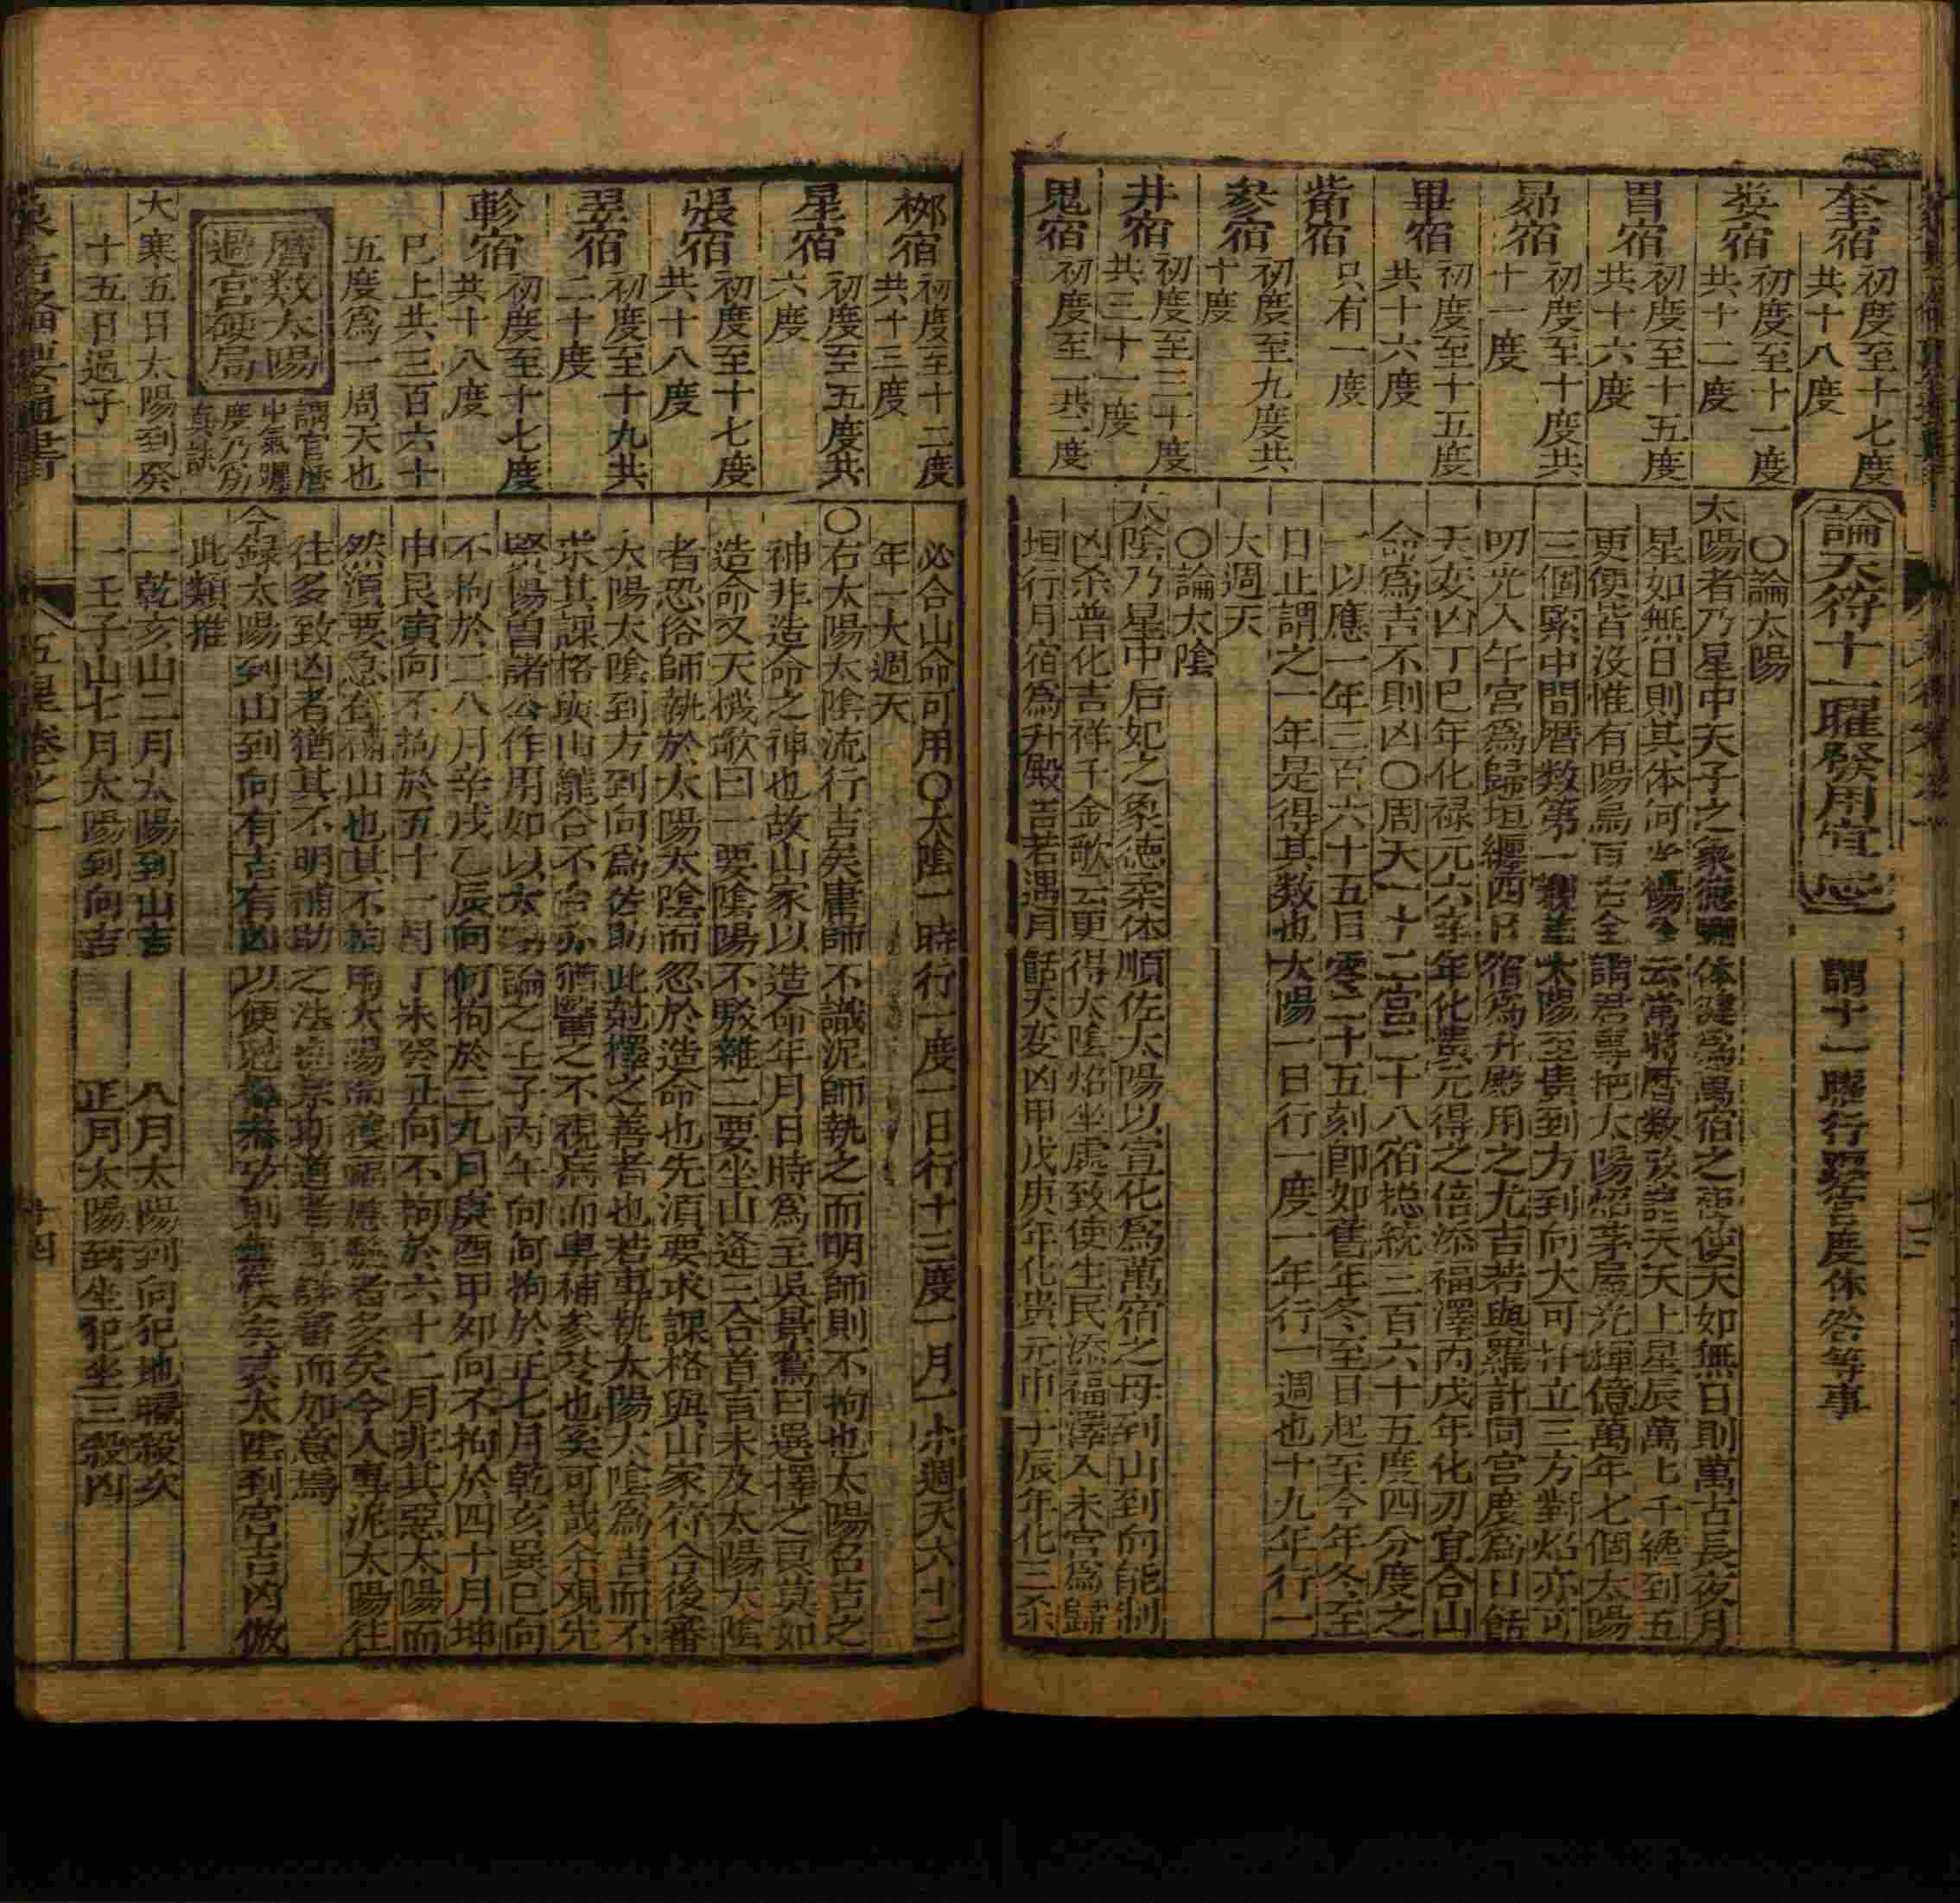 奎宿
初度至十七度
共十八度
婁宿
初度至十一度
共十二度
胃宿
初度至十五度
共十六度
昴宿
初度至十度共
十一度
畢宿
初度至十五度
共十六度
觜宿
只有一度
參宿
初度至九度共
十度
井宿
初度至三十度
共三十一度
鬼宿
初度至一共二度
論天符十一曜發用宜忌
謂十一曜行躔宮度休咎等事
〇論太陽
太陽者乃星中天子之象德剛體健為萬宿之
使天如無日則萬古長夜月
星如無日則其体何
云常將曆数
天上星辰萬七千總到五
更便皆沒惟有陽烏百吉全謂君專把太陽焰茅屋光揮億萬年七個太陽
三個緊中間曆数第一親
太陽至貴到方到向大可
立三方對焰亦可
叨光入午宮為歸垣纏四日宿為升殿用之尤吉若與羅計同宮度為日餂
天变凶丁巳年化禄元六辛年化貴元得之倍添福澤丙戊年化刃宜合山
命為吉不則凶〇周天一十二宮二十八宿捴統三百六十五度四分度之
一以應一年三百六十五日零二十五刻即如舊年冬至日起至今年冬至
日止謂之一年是得其数也太陽一日行一度一年行一週也十九年行一
大週天
〇論太陰
太陰乃星中后妃之象德柔体順佐太陽以宣化為萬宿之母到山到向能制
凶杀普化吉祥千金歌云更得太陰焰坐處致使生民添福澤入未宮為歸
垣行月宿為升殿吉若遇月餂天变凶甲戊庚年化貴元巾子辰年化三杀
柳宿
初度至十二度
共十三度
星宿
初度至五度共
六度
張宿
初度至十七度
共十八度
翌宿
初度至十九共
二十度
軫宿
初度至十七度
共十八度
巳上共三百六十
五度為一周天也
曆数太陽
過宮硬局
謂官曆
中氣躔
度乃
真訣
大寒五日太陽到癸
十五日過子
必合山命可用〇太陰一時行一度一日行十三度一月一小週天六十二
年一大週天
〇右太陽太陰流行吉矣庸師不識泥師執之而明師則不拘也太陽名吉之
神非造命之神也故山家以造命年月日時為主吳景鸞曰選擇之真莫如
造命又天機歌曰一要陰陽不駁雜二要坐山逢三合首言未及太陽太陰
者恐俗師執於太陽太陰而忽於造命也先須要求課格與山家符合後審
太陽太陰到方到向為佐助此尅擇之善者也若專執太陽太陰為吉而不
求其課格與山龍合不合亦猶醫之不視病而專補參苓也奚可哉余观先
賢楊曾諸公作用如以太陽論之壬子丙午向何拘於正七月乾亥巽巳向
不拘於二八月辛戌乙辰向何拘於三九月庚酉甲卯向不拘於四十月坤
申艮寅向不拘於五十一月丁未癸丑向不拘於六十二月非其惡太陽而
然須要急在補山也其不補
用太陽而獲福應驗者多矣今人專泥太陽往
往多致凶者猶其不明補助之法
而加意焉
今録太陽到山到向有吉有凶以便
太陰到宮吉凶倣
此類推
一乾亥山二月太陽到山吉
八月太陽到向犯地曜殺次
一壬子山七月太陽到向吉
正月太陽到坐犯坐三殺凶
十四